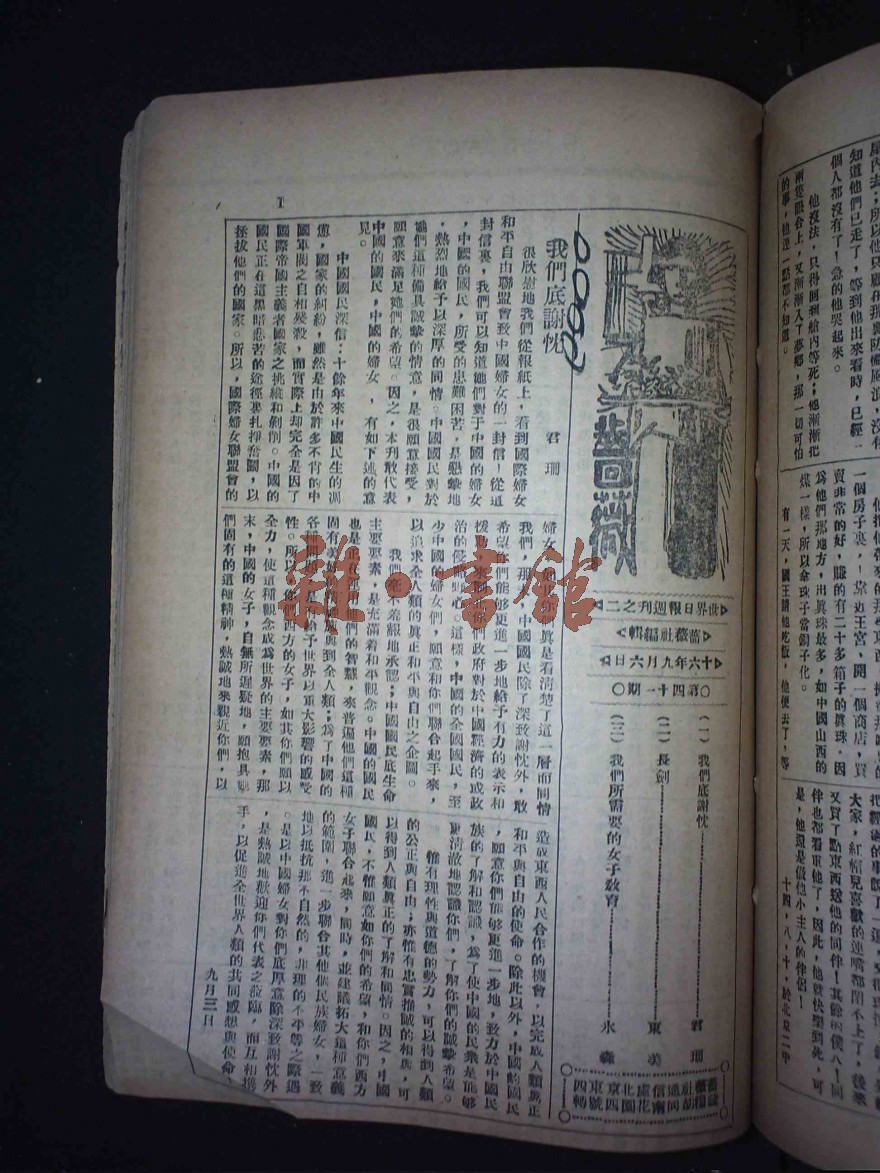 薔薇
世界日報週刊之二
薔薇社編輯
十六年九月六日
第四十一期
(一) 我們底謝忱 君珊
(二) 長劍 東美
(三) 我們所需要的女子教育 水森
我們底謝忱
君珊
很欣慰地我們從報紙上，看到國際婦女
和平自由聯盟會致中國婦女的一封信！從這
封信裏，我們可以知道她們對于中國的婦女
，中國的國民，所受的患難困苦，是懇摯地
，熱烈地給予以深厚的同情。中國國民對於
她們這種備具誠摯的情意，是很願意接受，
願意來滿足她們的希望。因之，本刊敢代表
中國的國民，中國的婦女，有如下述的意
見。
中國國民深信：十餘年來中國民生的凋
憊，國家的糾紛，雖然是由於許多不肖的中
國軍閥之自相殘殺，而實際上却完全是因了
國際帝國主義者國家之挑縱和剝削。中國的
國民正在這黑暗悲苦的途徑裏扎掙奮鬭，以
拯拔他們的國家。所以，國際婦女聯盟會的
我們，那末，中國國民除了深致謝忱外，敢
希望你們能够更進一步地給予有力的表示和
治的侵略野心。這樣，中國的全國國民，至
少中國的婦女們，願意和你們聯合起手來，
以追求全人類的真正和平自由之企圖。
我們毫不羞赧地承認；中國國民底生命
主要要素，是充滿着和平觀念。中國的國民
性。所以，你們西方的女子，如其你們願以
全力，使這種觀念成為世界的主要要素，那
末，中國的女子，自無所遲疑地，願抱具
們固有的這種精神，熱誠地來親近你們，以
造成東西人民合作的機會，以完成人類真正
和平與自由的使命。除此以外，中國的國民
，願意你們能够更進一步地，致力於中國民
族的了解和認識，為了使中國的民衆是能够
更清澈地認識你們，了解你們的誠摯希望。
惟有理性與道德的勢力，可以得到人類
的公正與自由；亦惟有忠實推誠的相與，可
以得到人類真正的了解和同情。因之，中國
國民，不惟願意如你們的希望，和你們西方
女子聯合起來，同時，並建議拓大這種意義
的範圍，進一步聯合其他個民族婦女，一致
地以抵抗那不自然的，非理的不平等之際遇
。是以中國婦女對你們底厚意除深致謝忱外
，是熱誠地歡迎你們代表之蒞臨，而互相攜
手，以促進全世界人類的共同感想與使命、
九月三日
他沒法，只得回到艙內等死；他漸漸把
兩隻眼合上，又漸漸入了夢鄉，那一切可怕
的事，他連一點都不知道。
有一天，國王請他吃飯，他便去了，等
十四，八，十，於北京二中
雜·書館